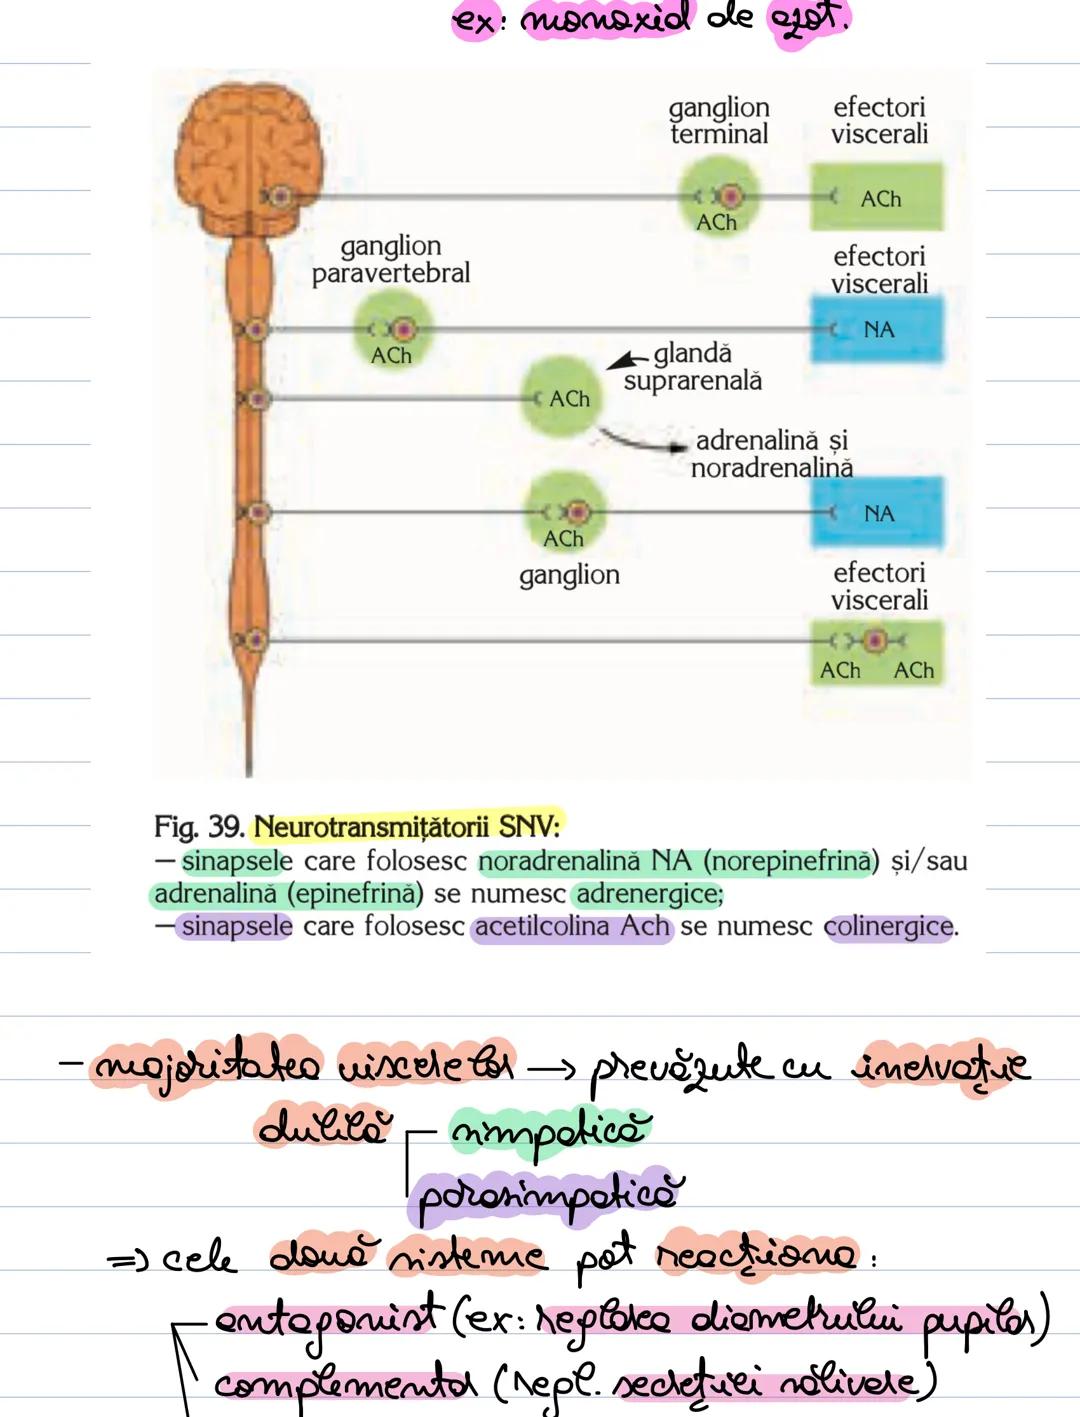 ex: monoxid de azot.
ganglion terminal
efectori viscerali
ACh
ACh
ganglion paravertebral
efectori viscerali
ACh
NA
glandă suprarenală
ACh
adrenalină și noradrenalină
ACh
NA
ganglion
efectori viscerali
ACh ACh
Fig. 39. Neurotransmițătorii SNV:
– sinapsele care folosesc noradrenalină NA (norepinefrină) și/sau
adrenalină (epinefrină) se numesc adrenergice;
– sinapsele care folosesc acetilcolina Ach se numesc colinergice.
- majoritatea viscerelor → prevăzute cu inervație
dublă simpatică
parasimpatică
=> cele două sisteme pot reacționa:
antagonist (ex: reglarea diametrului pupilar)
complementar (regl. secreției salivare)